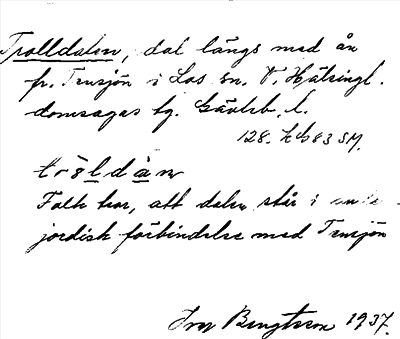 Trolldalen, dal längs med ån
fr. Tensjön i Los sn. V. Hälsingl.
domsagas tg. Gävleb. l.
128. h b 83 SM.
tröldàn
Folk tror, att dalen står i unde
jordisk förbindelse med Tensjön
Ivar Bengtsson 1937.